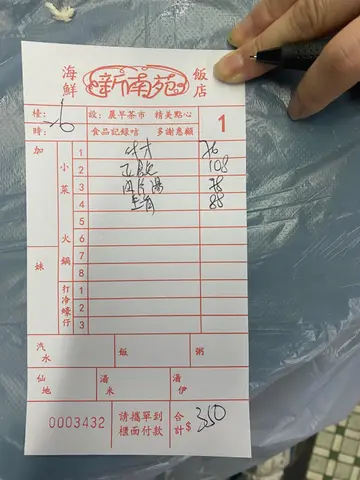 海鮮 新南苑 飯店
檯: 設: 晨早茶市 精美點心
時: 食品記錄咭 多謝惠顧 1
加
妹
小菜
火鍋
打冷蠔仔
1 76
2 108
3 肉片湯 78
4 88
5
6
7
8
1
2
3
汽水 飯 粥
仙地 湯米 湯伊
0003432 請攜單到櫃面付款 合計$ 350